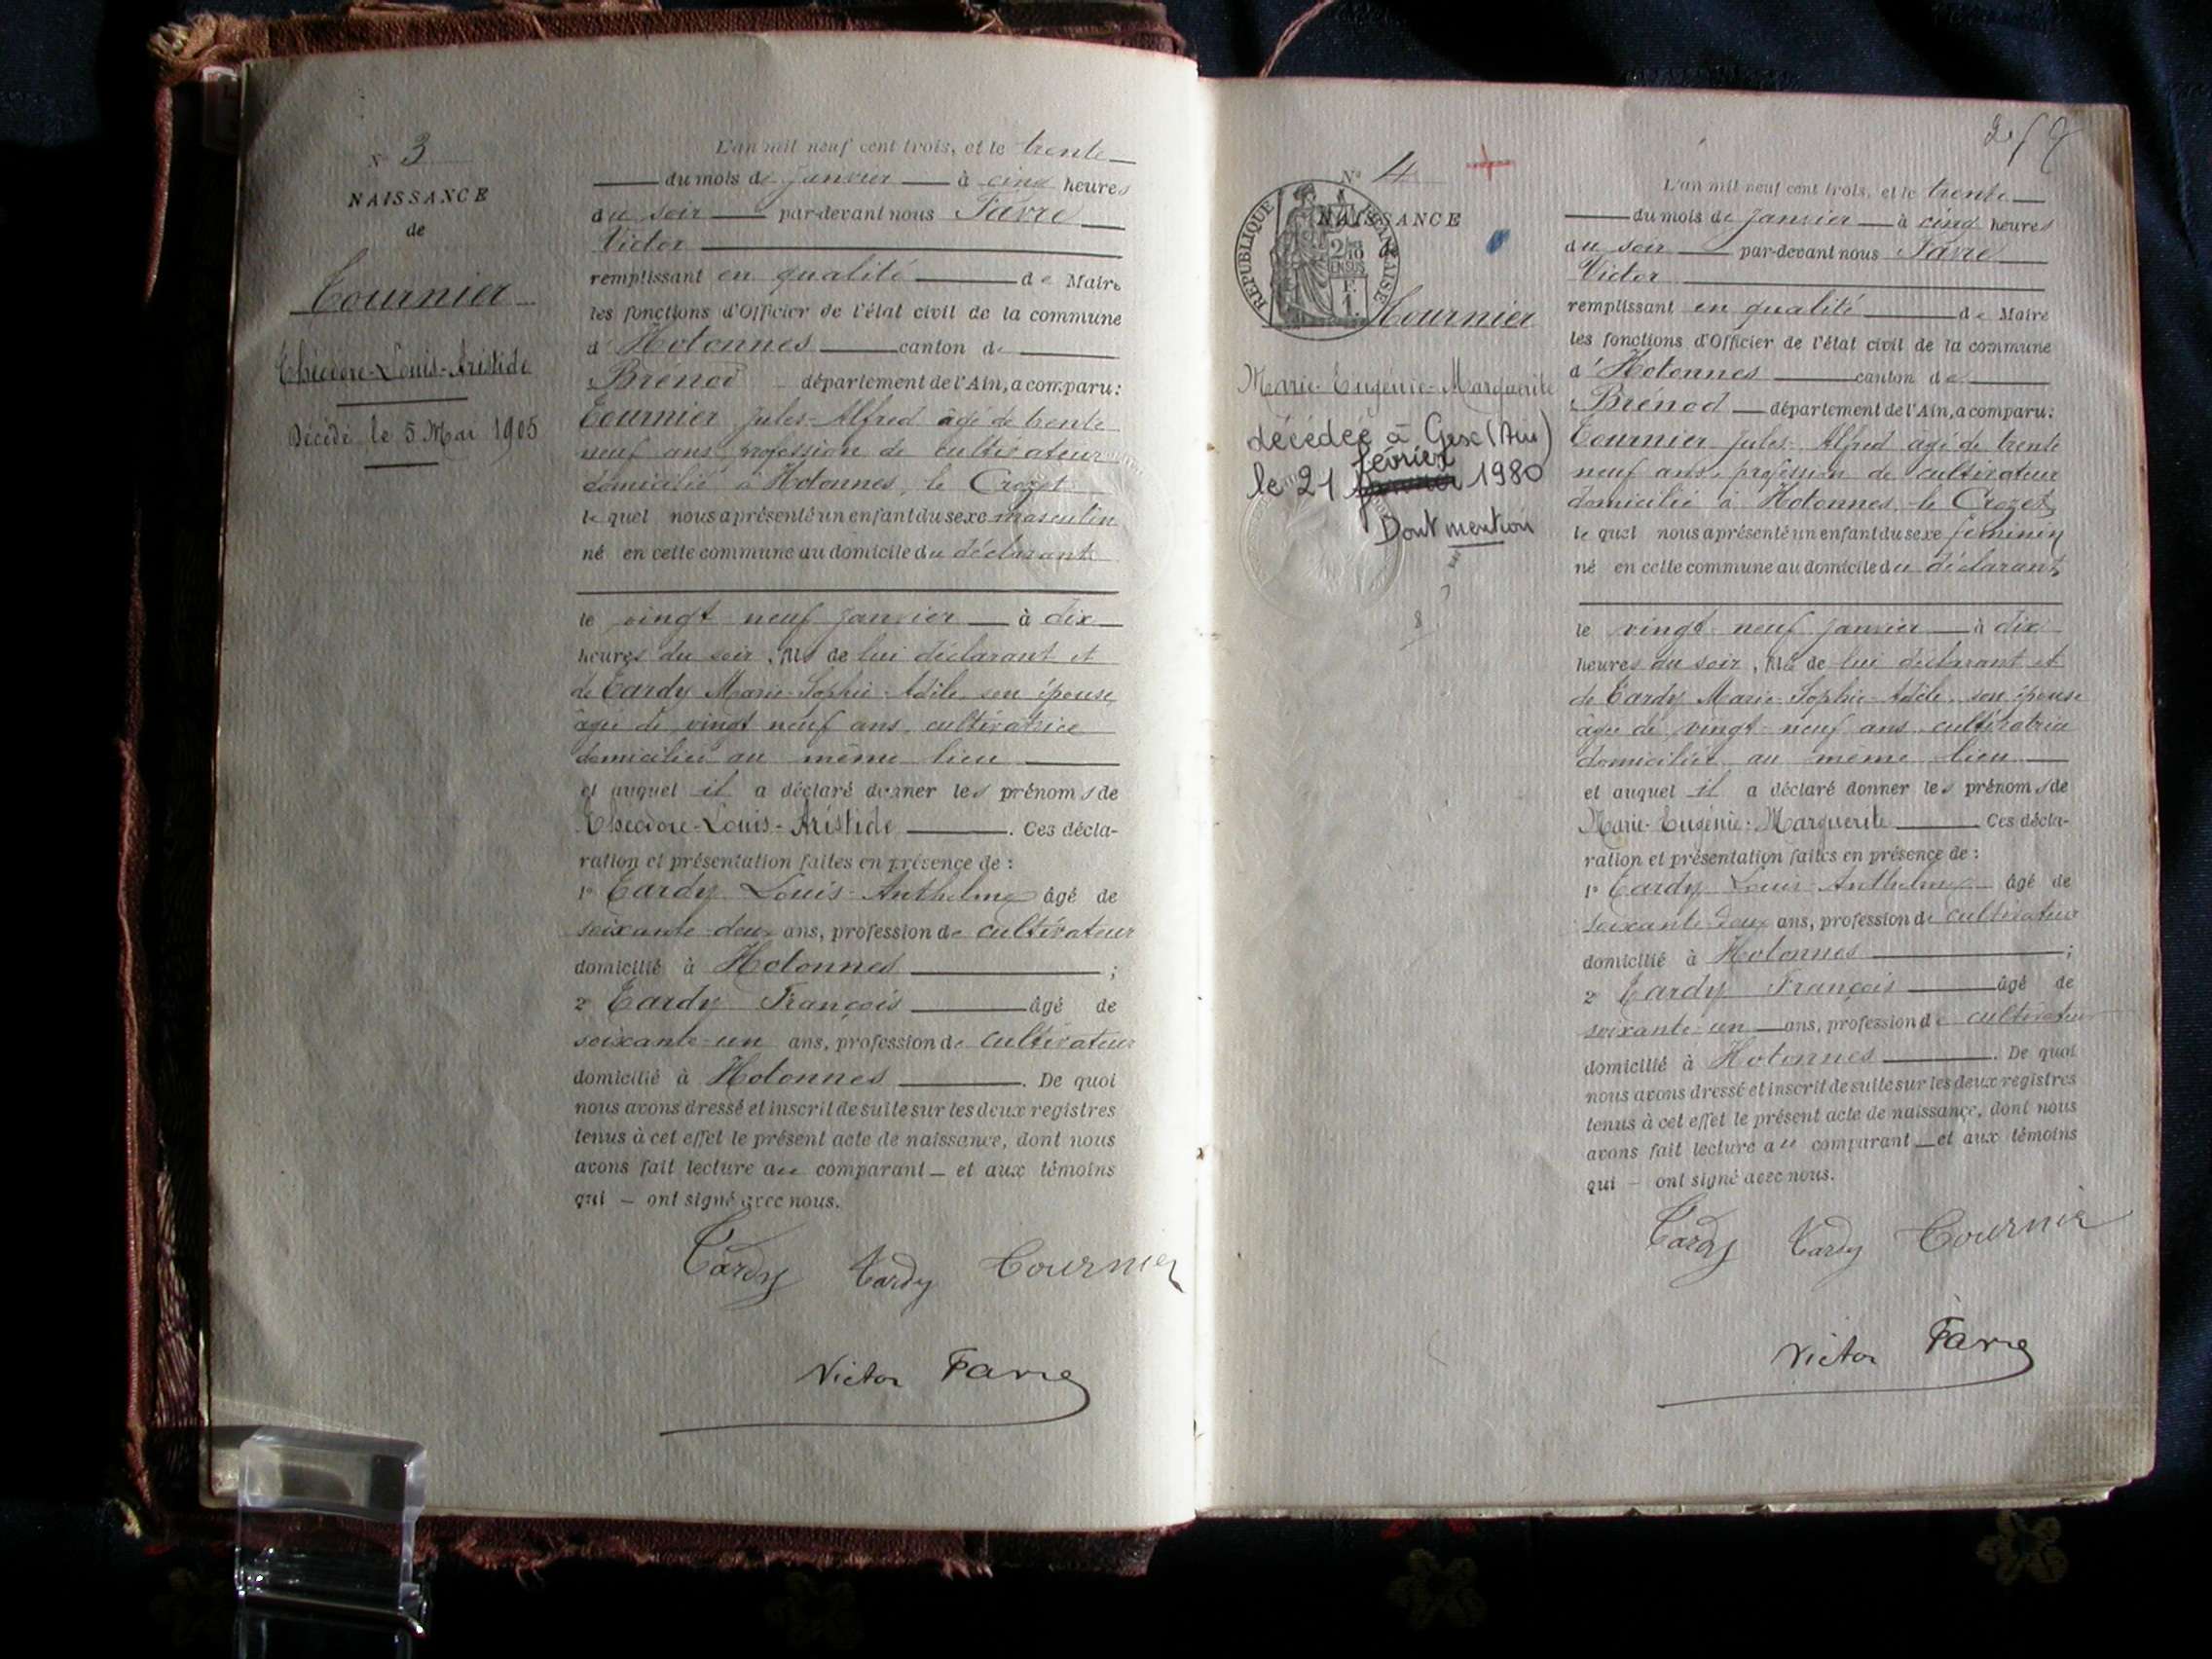 N° 3
NAISSANCE
de
Tournier
Théodore-Louis-Aristide
Décédé le 5 Mai 1905
L'an mil neuf cent trois, et le trente
du mois de Janvier à cinq heures
du soir par-devant nous Favre
Victor
remplissant en qualité de Maire
les fonctions d'Officier de l'état civil de la commune
d'Hotonnes canton de
Brénod département de l'Ain, a comparu:
Tournier Jules-Alfred âgé de trente
neuf ans, profession de cultivateur
domicilié à Hotonnes, le Crozet
lequel nous a présenté un enfant du sexe masculin
né en cette commune au domicile du déclarant
le vingt neuf Janvier à dix
heures du soir, fils de lui déclarant et
de Tardy Marie-Sophie-Adèle, son épouse,
âgée de vingt neuf ans, cultivatrice
domiciliée au même lieu
et auquel il a déclaré donner les prénoms de
Théodore-Louis-Aristide. Ces décla-
ration et présentation faites en présence de:
1° Tardy Louis-Anthelme âgé de
soixante deux ans, profession de cultivateur
domicilié à Hotonnes;
2° Tardy François âgé de
soixante-un ans, profession de cultivateur
domicilié à Hotonnes. De quoi
nous avons dressé et inscrit de suite sur les deux registres
tenus à cet effet le présent acte de naissance, dont nous
avons fait lecture au comparant et aux témoins
qui ont signé avec nous.
Tardy Tardy Tournier
Victor Favre
N° 4
NAISSANCE
de
REPUBLIQUE FRANÇAISE
2/10 EN SUS
F. 1.
Tournier
Marie-Eugénie-Marguerite
décédée à Gex (Ain)
le 21 février 1980
Dont mention
L'an mil neuf cent trois, et le trente
du mois de Janvier à cinq heures
du soir par-devant nous Favre
Victor
remplissant en qualité de Maire
les fonctions d'Officier de l'état civil de la commune
d'Hotonnes canton de
Brénod département de l'Ain, a comparu:
Tournier Jules-Alfred âgé de trente
neuf ans, profession de cultivateur
domicilié à Hotonnes, le Crozet
lequel nous a présenté un enfant du sexe féminin
né en cette commune au domicile du déclarant,
le vingt neuf Janvier à dix
heures du soir, fille de lui déclarant et
de Tardy Marie-Sophie-Adèle, son épouse
âgée de vingt-neuf ans, cultivatrice
domiciliée au même lieu
et auquel il a déclaré donner les prénoms de
Marie-Eugénie-Marguerite Ces décla-
ration et présentation faites en présence de:
1° Tardy Louis-Anthelme âgé de
soixante deux ans, profession de cultivateur
domicilié à Hotonnes;
2° Tardy François âgé de
soixante-un ans, profession de cultivateur
domicilié à Hotonnes. De quoi
nous avons dressé et inscrit de suite sur les deux registres
tenus à cet effet le présent acte de naissance, dont nous
avons fait lecture au comparant et aux témoins
qui ont signé avec nous.
Tardy Tardy Tournier
Victor Favre